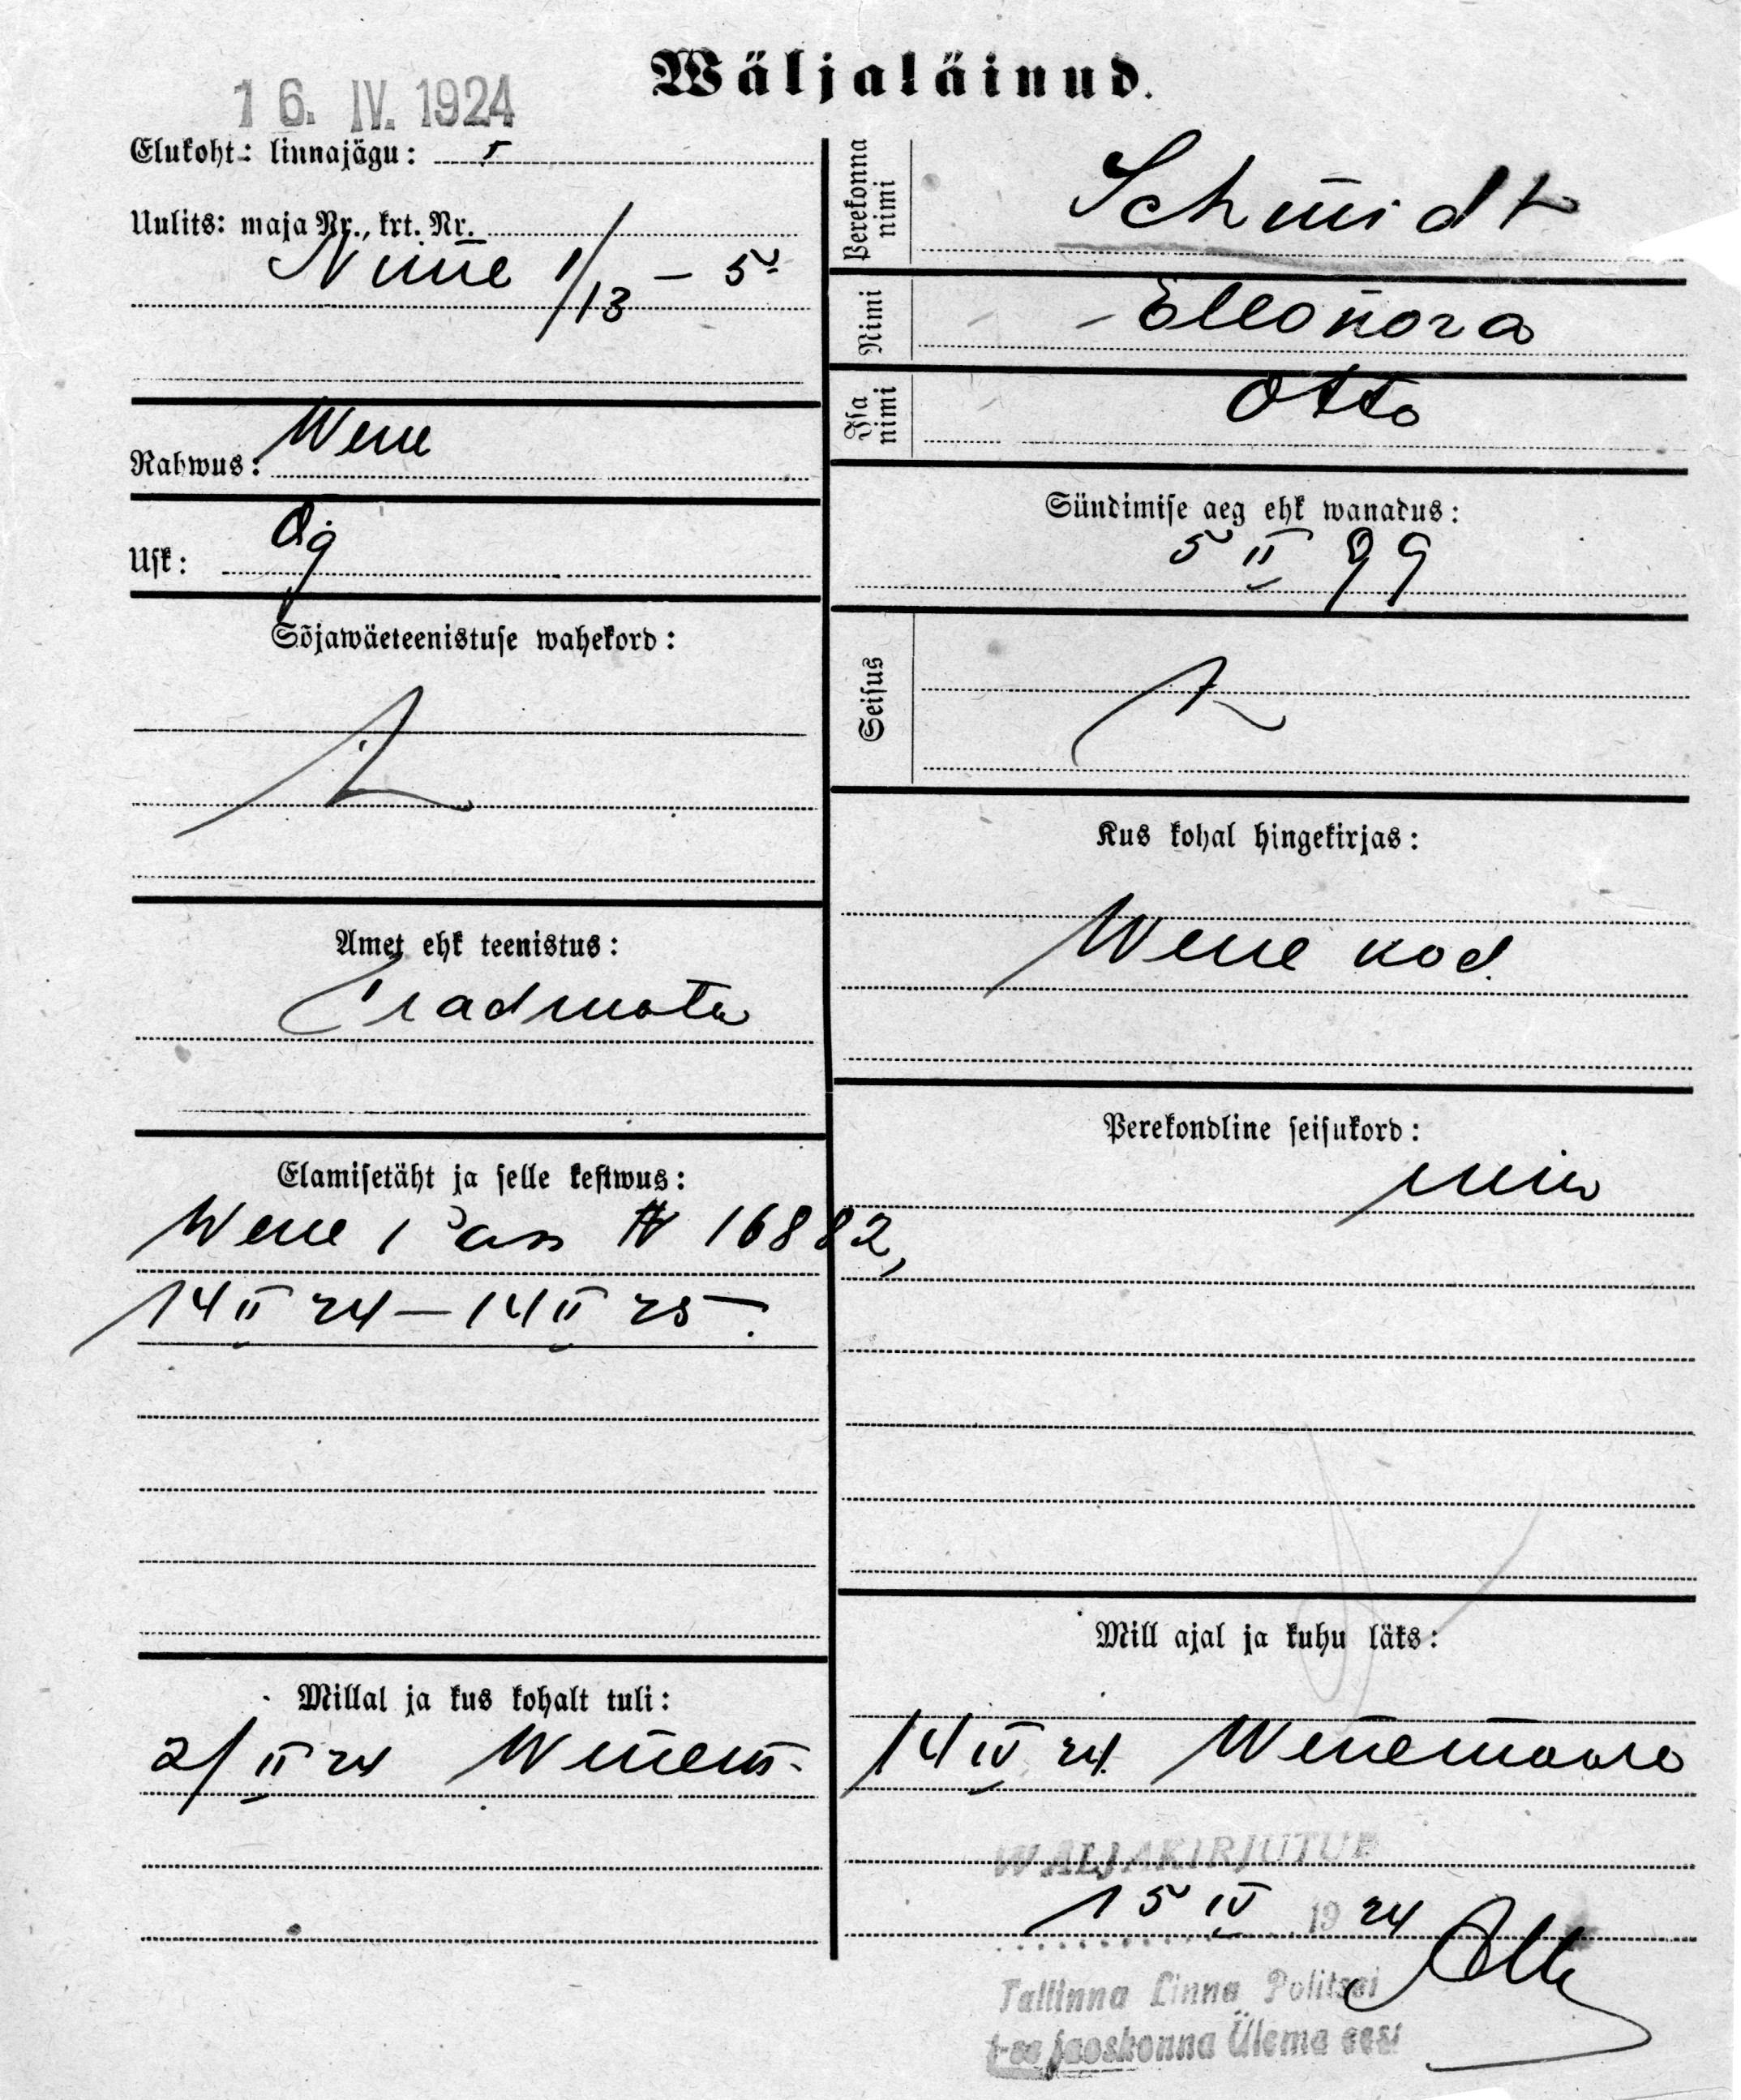 Wäljaläinud.
16. IV. 1924
Elukoht: linnajagu: I
Uulits: maja Nr., krt. Nr.
Niine 1/13 – 5
Rahwus: Wene
Usk: Õig
Sõjawäeteenistuse wahekord:
Amet ehk teenistus:
Eradmata
Elamisetäht ja selle kestwus:
Wene Pass № 16882,
14 II 24 – 14 II 25.
Millal ja kus kohalt tuli:
21 II 24 Wenem.
Perekonna nimi
Schmidt
Nimi
Elleonora
Isa nimi
Otto
Sündimise aeg ehk wanadus:
5 II 99
Seisus
Kus kohal hingekirjas:
Wene kod.
Perekondline seisukord:
Mill ajal ja kuhu läks:
14 IV 24. Wenemaale
WÄLJAKIRJUTUD
15 IV 1924
Tallinna Linna Politsei
1-se jaoskonna Ülema eest